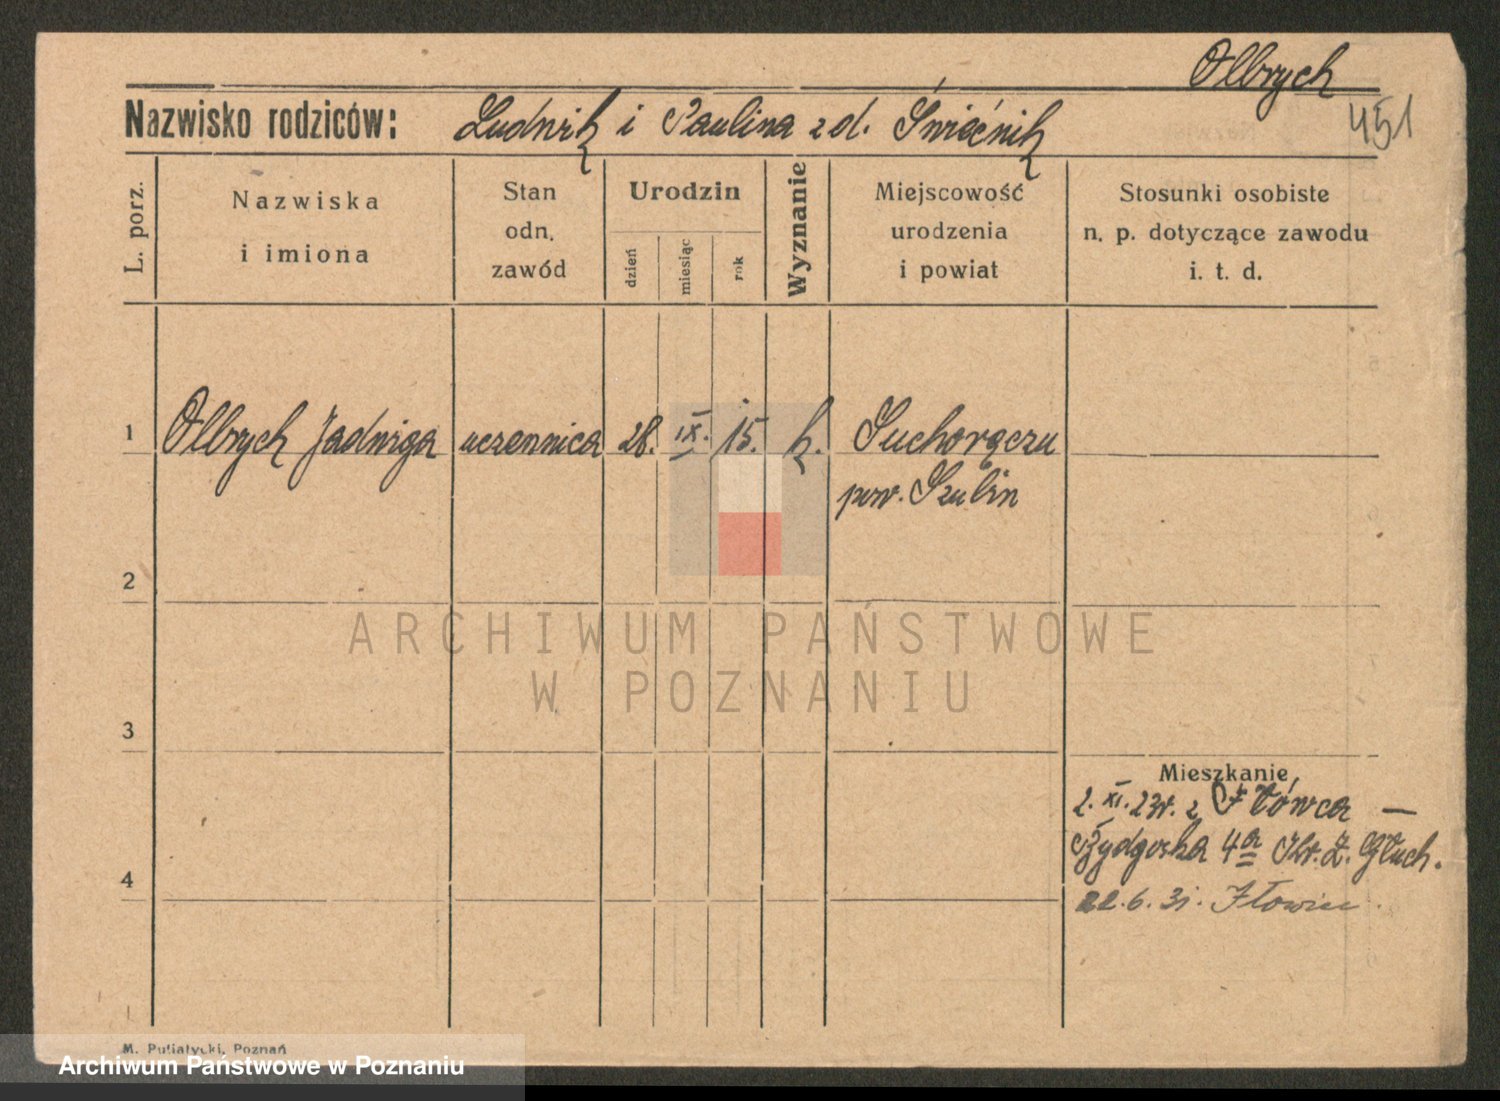 Olbrych
451
Nazwisko rodziców: Ludwik i Paulina z d. Świącnik
L. porz.
Nazwiska
i imiona
Stan
odn.
zawód
Urodzin
dzień
miesiąc
rok
Wyznanie
Miejscowość
urodzenia
i powiat
Stosunki osobiste
n. p. dotyczące zawodu
i. t. d.
1 Olbrych Jadwiga uczennica 28. IX. 15. k. Suchorączu
pow. Szubin
2
3
4
Mieszkanie
2. XI. 23r. z Iłówca —
Bydgoska 4a Kr. Z. Głuch.
22.6.31. Iłowiec.
ARCHIWUM PAŃSTWOWE
W POZNANIU
M. Putiatycki, Poznań
Archiwum Państwowe w Poznaniu